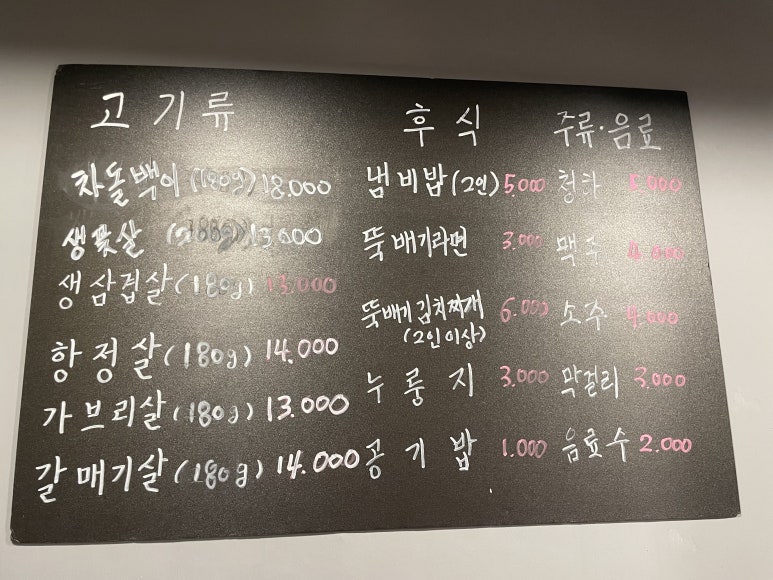 고기류
차돌백이 (180g) 18.000
생꽃살 (180g) 13.000
생삼겹살 (180g) 13.000
항정살 (180g) 14.000
가브리살 (180g) 13.000
갈매기살 (180g) 14.000
후식
냄비밥 (2인) 5.000
뚝배기라면 3.000
뚝배기 김치찌개 6.000
(2인 이상)
누룽지 3.000
공기밥 1.000
주류·음료
청하 5.000
맥주 4.000
소주 4.000
막걸리 3.000
음료수 2.000